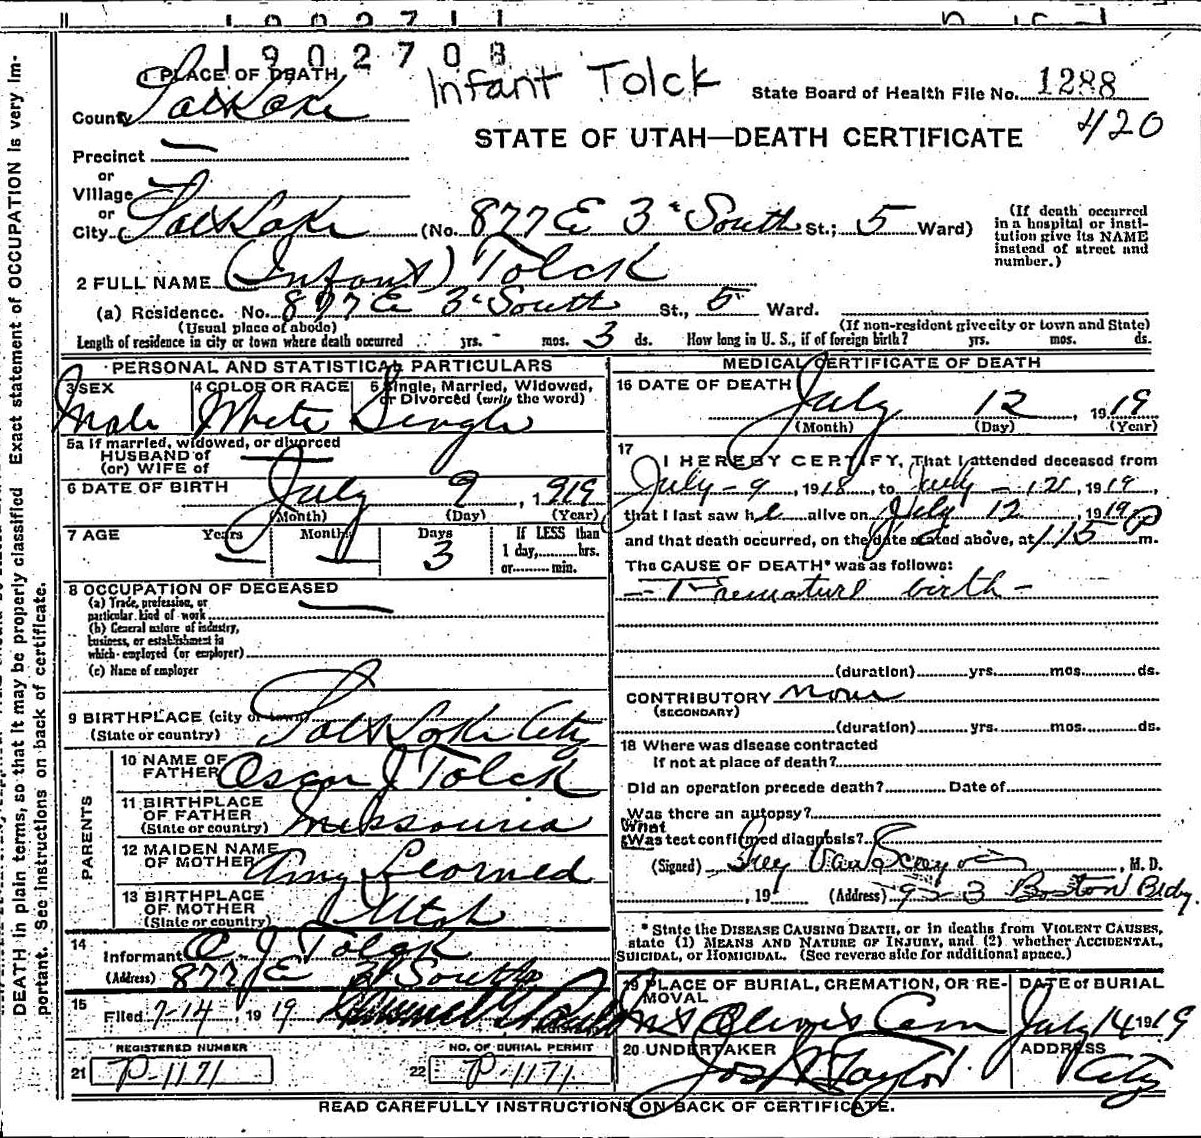 1902708
Infant Tolck
State Board of Health File No. 1288
420
1 PLACE OF DEATH
County Salt Lake
STATE OF UTAH—DEATH CERTIFICATE
Precinct —
or
Village
or
City Salt Lake (No. 877 E 3d South St.; 5 Ward)
(If death occurred in a hospital or insti-
tution give its NAME instead of street and number.)
2 FULL NAME (Infant) Tolck
(a) Residence. No. 877 E 3d South St., 5 Ward.
(Usual place of abode) (If non-resident give city or town and State)
Length of residence in city or town where death occurred yrs. - mos. 3 ds. How long in U. S., if of foreign birth? yrs. mos. ds.
PERSONAL AND STATISTICAL PARTICULARS
3 SEX Male
4 COLOR OR RACE White
5 Single, Married, Widowed, or Divorced (write the word) Single
5a If married, widowed, or divorced
HUSBAND of
(or) WIFE of
6 DATE OF BIRTH July 9, 1919
(Month) (Day) (Year)
7 AGE Years — Months — Days 3 If LESS than 1 day,....hrs. or....min.
8 OCCUPATION OF DECEASED —
(a) Trade, profession, or particular kind of work
(b) General nature of industry, business, or establishment in which employed (or employer)
(c) Name of employer
9 BIRTHPLACE (city or town) Salt Lake City
(State or country)
PARENTS
10 NAME OF FATHER Oscar J Tolck
11 BIRTHPLACE OF FATHER (State or country) Missouria
12 MAIDEN NAME OF MOTHER Amy Learned
13 BIRTHPLACE OF MOTHER (State or country) Utah
14 Informant O. J Tolck
(Address) 877 E 3d South
15 Filed 7-14, 1919
REGISTERED NUMBER
21 P-1171
NO. OF BURIAL PERMIT
22 P-1171
MEDICAL CERTIFICATE OF DEATH
16 DATE OF DEATH July 12, 1919
(Month) (Day) (Year)
17 I HEREBY CERTIFY, That I attended deceased from
July - 9, 1918, to July - 12, 1919,
that I last saw h e alive on July 12, 1919
and that death occurred, on the date stated above, at 115 P m.
The CAUSE OF DEATH* was as follows:
— Premature birth —
(duration) yrs. mos. ds.
CONTRIBUTORY none
(SECONDARY)
(duration) yrs. mos. ds.
18 Where was disease contracted
If not at place of death?
Did an operation precede death? Date of
Was there an autopsy?
What
Was test confirmed diagnosis?
(Signed) Van Scoyoc, M. D.
, 19 (Address) 923 Boston Bldg.
* State the DISEASE CAUSING DEATH, or in deaths from VIOLENT CAUSES,
state (1) MEANS AND NATURE OF INJURY, and (2) whether ACCIDENTAL,
SUICIDAL, or HOMICIDAL. (See reverse side for additional space.)
19 PLACE OF BURIAL, CREMATION, OR RE-
MOVAL Mt Olivis Cem
DATE of BURIAL July 14 1919
20 UNDERTAKER Jos Wm Taylor
ADDRESS City
READ CAREFULLY INSTRUCTIONS ON BACK OF CERTIFICATE.
DEATH in plain terms, so that it may be properly classified. Exact statement of OCCUPATION is very im-
portant. See instructions on back of certificate.